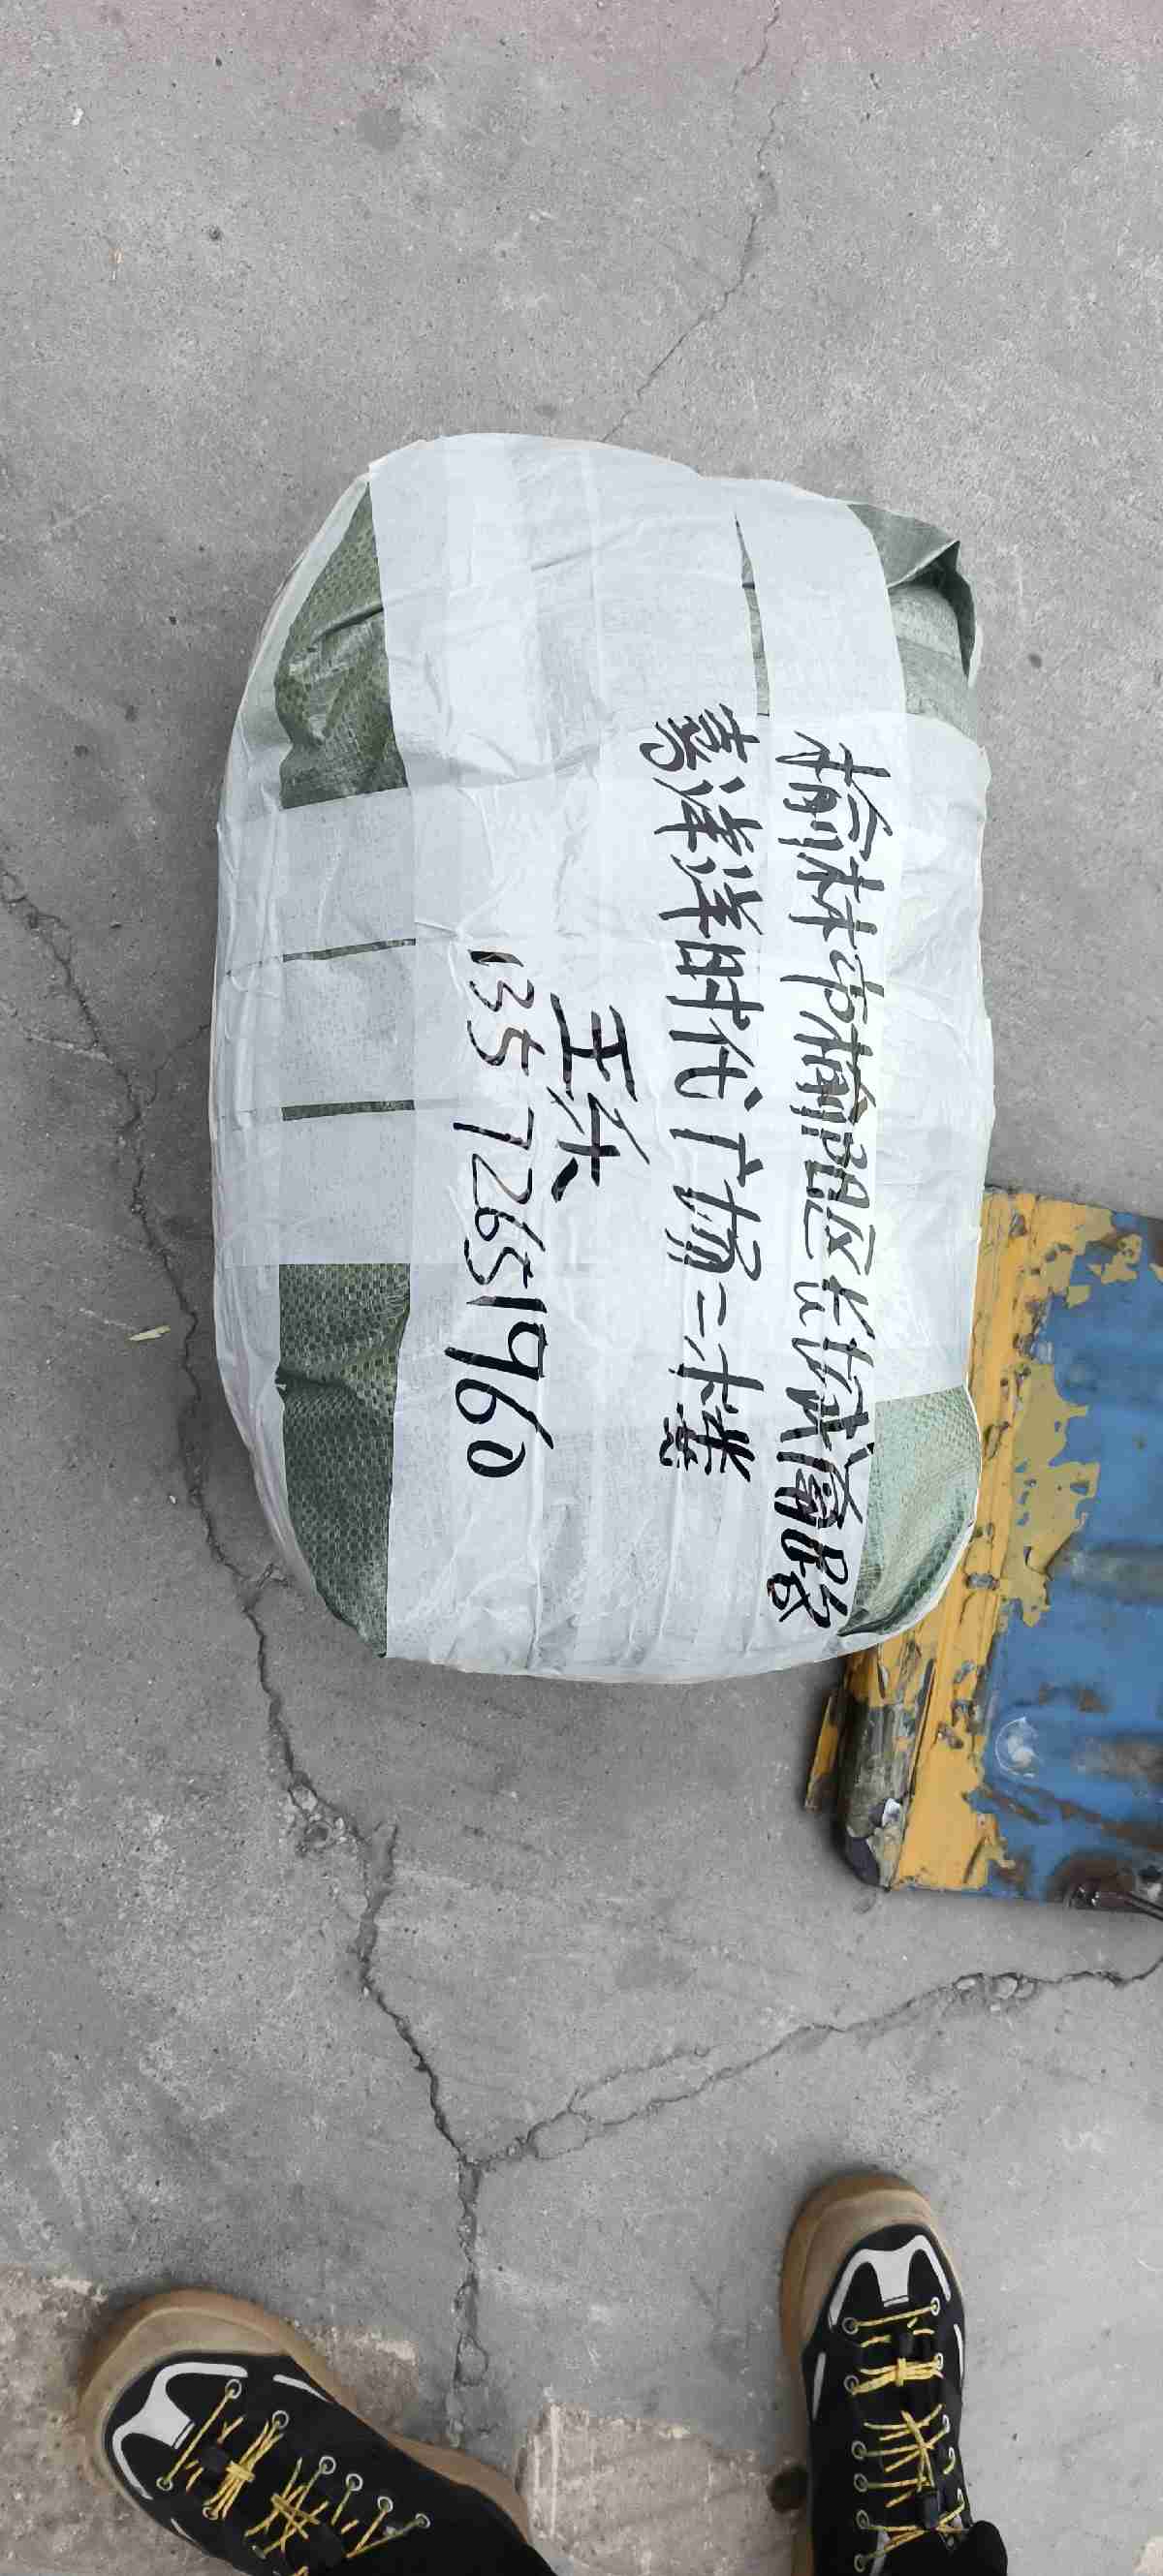 榆林市榆阳区长城南路
喜洋洋时代广场二楼
王
135 72651960